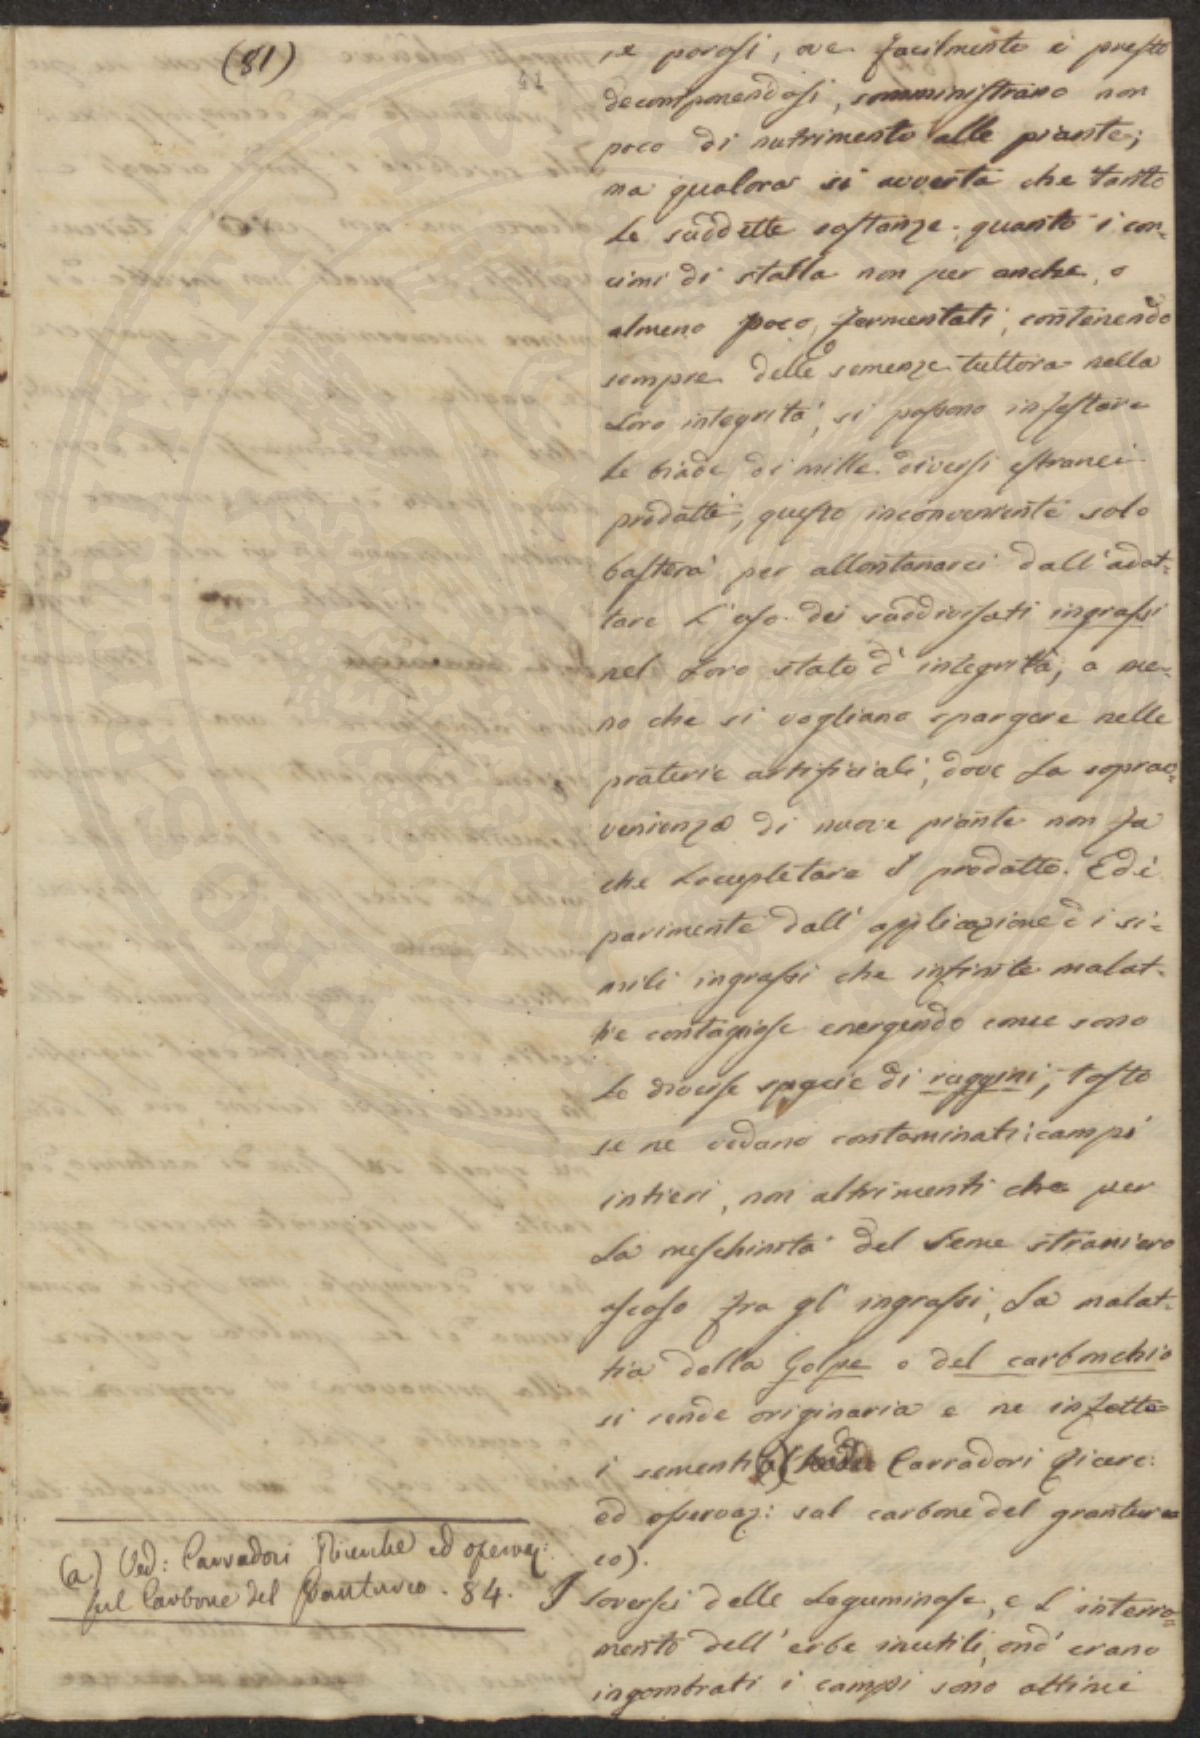 (81)
42
se porosi, ove facilmente e presto
decomponendosi, somministrano non
poco di nutrimento alle piante;
ma qualora si avverta che tanto
le suddette sostanze, quanto i con-
cimi di stalla non per anche, o
almeno poco, fermentati, contenendo
sempre delle semenze tuttora nella
loro integrità, si possono infestare
le biade di mille diversi estranei
prodotti, questo inconveniente solo
basterà per allontanarci dall'adot-
tare l'uso dei suddivisati ingrassi
nel loro stato d'integrità, a me-
no che si vogliano spargere nelle
praterie artificiali, dove la soprav-
venienza di nuove piante non fa
che locupletare il prodotto. Ed è
parimente dall'applicazione di si-
mili ingrassi che infinite malat-
tie contagiose emergendo come sono
le diverse specie di ruggini, tosto
se ne vedano contaminati i campi
intieri, non altrimenti che per
la meschinità del seme straniero
ascoso fra gl'ingrassi, la malat-
tia della Golpe o del carbonchio
si rende originaria e ne infetta
i sementi (a) Carradori Ricerc:
ed osservaz: sul carbone del grantur
co).
I soversci delle leguminose, e l'interra-
mento dell'erbe inutili, ond'erano
ingombrati i campi sono ottimi
(a) Ved: Carradori Ricerche ed osservaz:
sul Carbone del Granturco. 84.